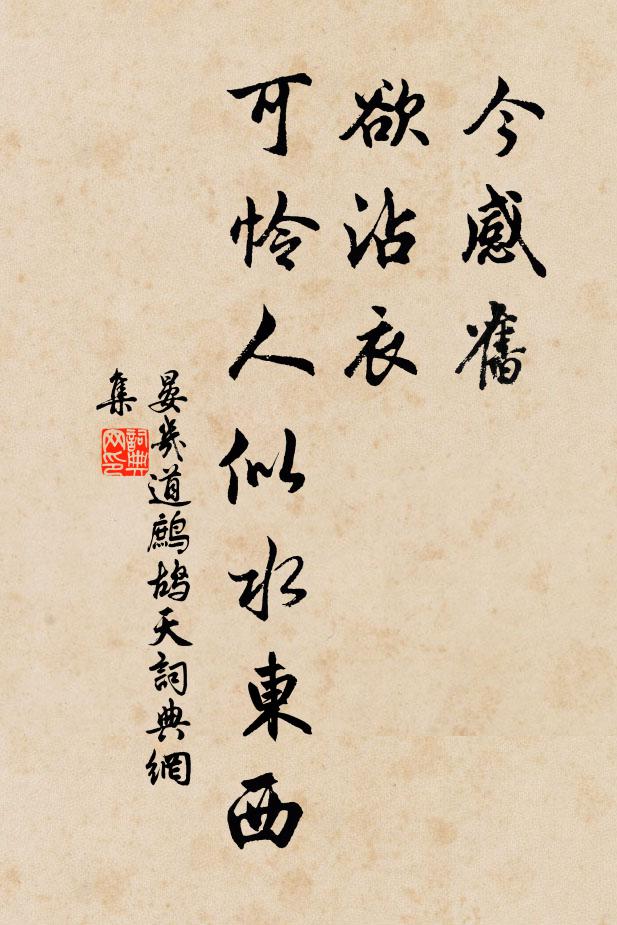 今感舊
欲沾衣
可怜人似水東西
晏幾道鷓鴣天詞典網
集
詞典
网印